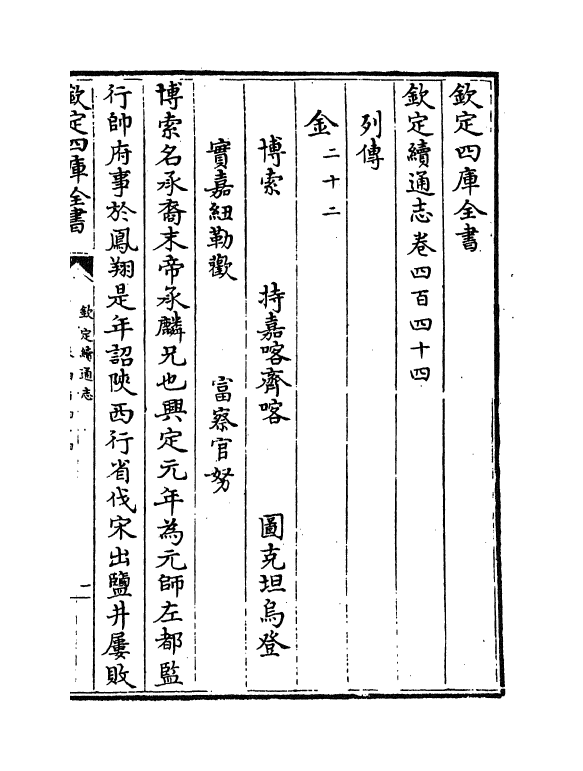 欽定四庫全書
欽定續通志卷四百四十四
列傳
金二十二
博索 持嘉喀齊喀 圖克坦烏登
實嘉紐勒歡 富察官努
博索名承裔末帝承麟兄也興定元年為元帥左都監
行帥府事於鳳翔是年詔陜西行省伐宋出鹽井屢敗
欽定四庫全書
欽定續通志
一